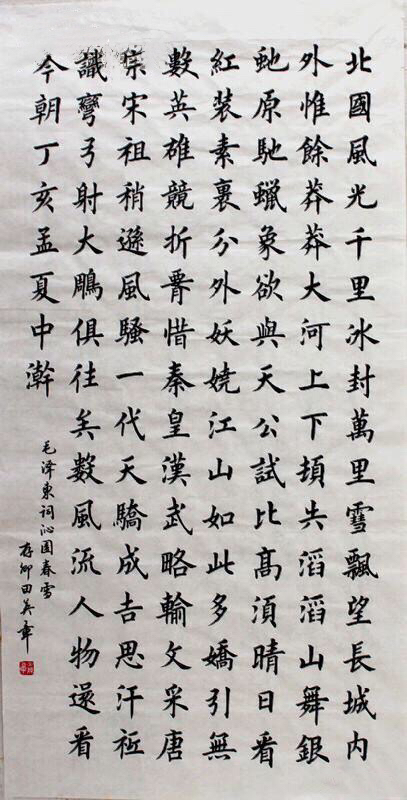 北國風光千里冰封萬里雪飄望長城内
外惟餘莽莽大河上下頓失滔滔山舞銀
虵原馳蠟象欲與天公試比高須晴日看
紅裝素裹分外妖嬈江山如此多嬌引無
數英雄競折腰惜秦皇漢武略輸文采唐
宗宋祖稍遜風騷一代天驕成吉思汗祗
識彎弓射大鵰俱往矣數風流人物還看
今朝丁亥孟夏中澣
毛泽東詞沁園春雪
存卿田英章